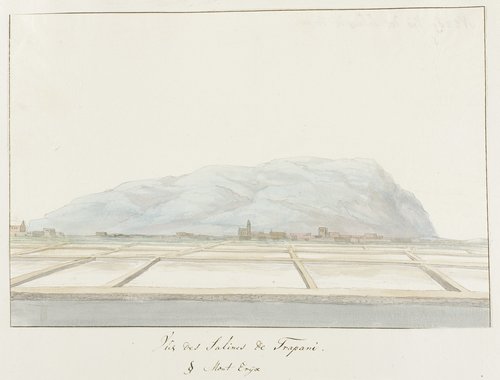 Vüe des Salines de Trapani.
§ Mont Eryx